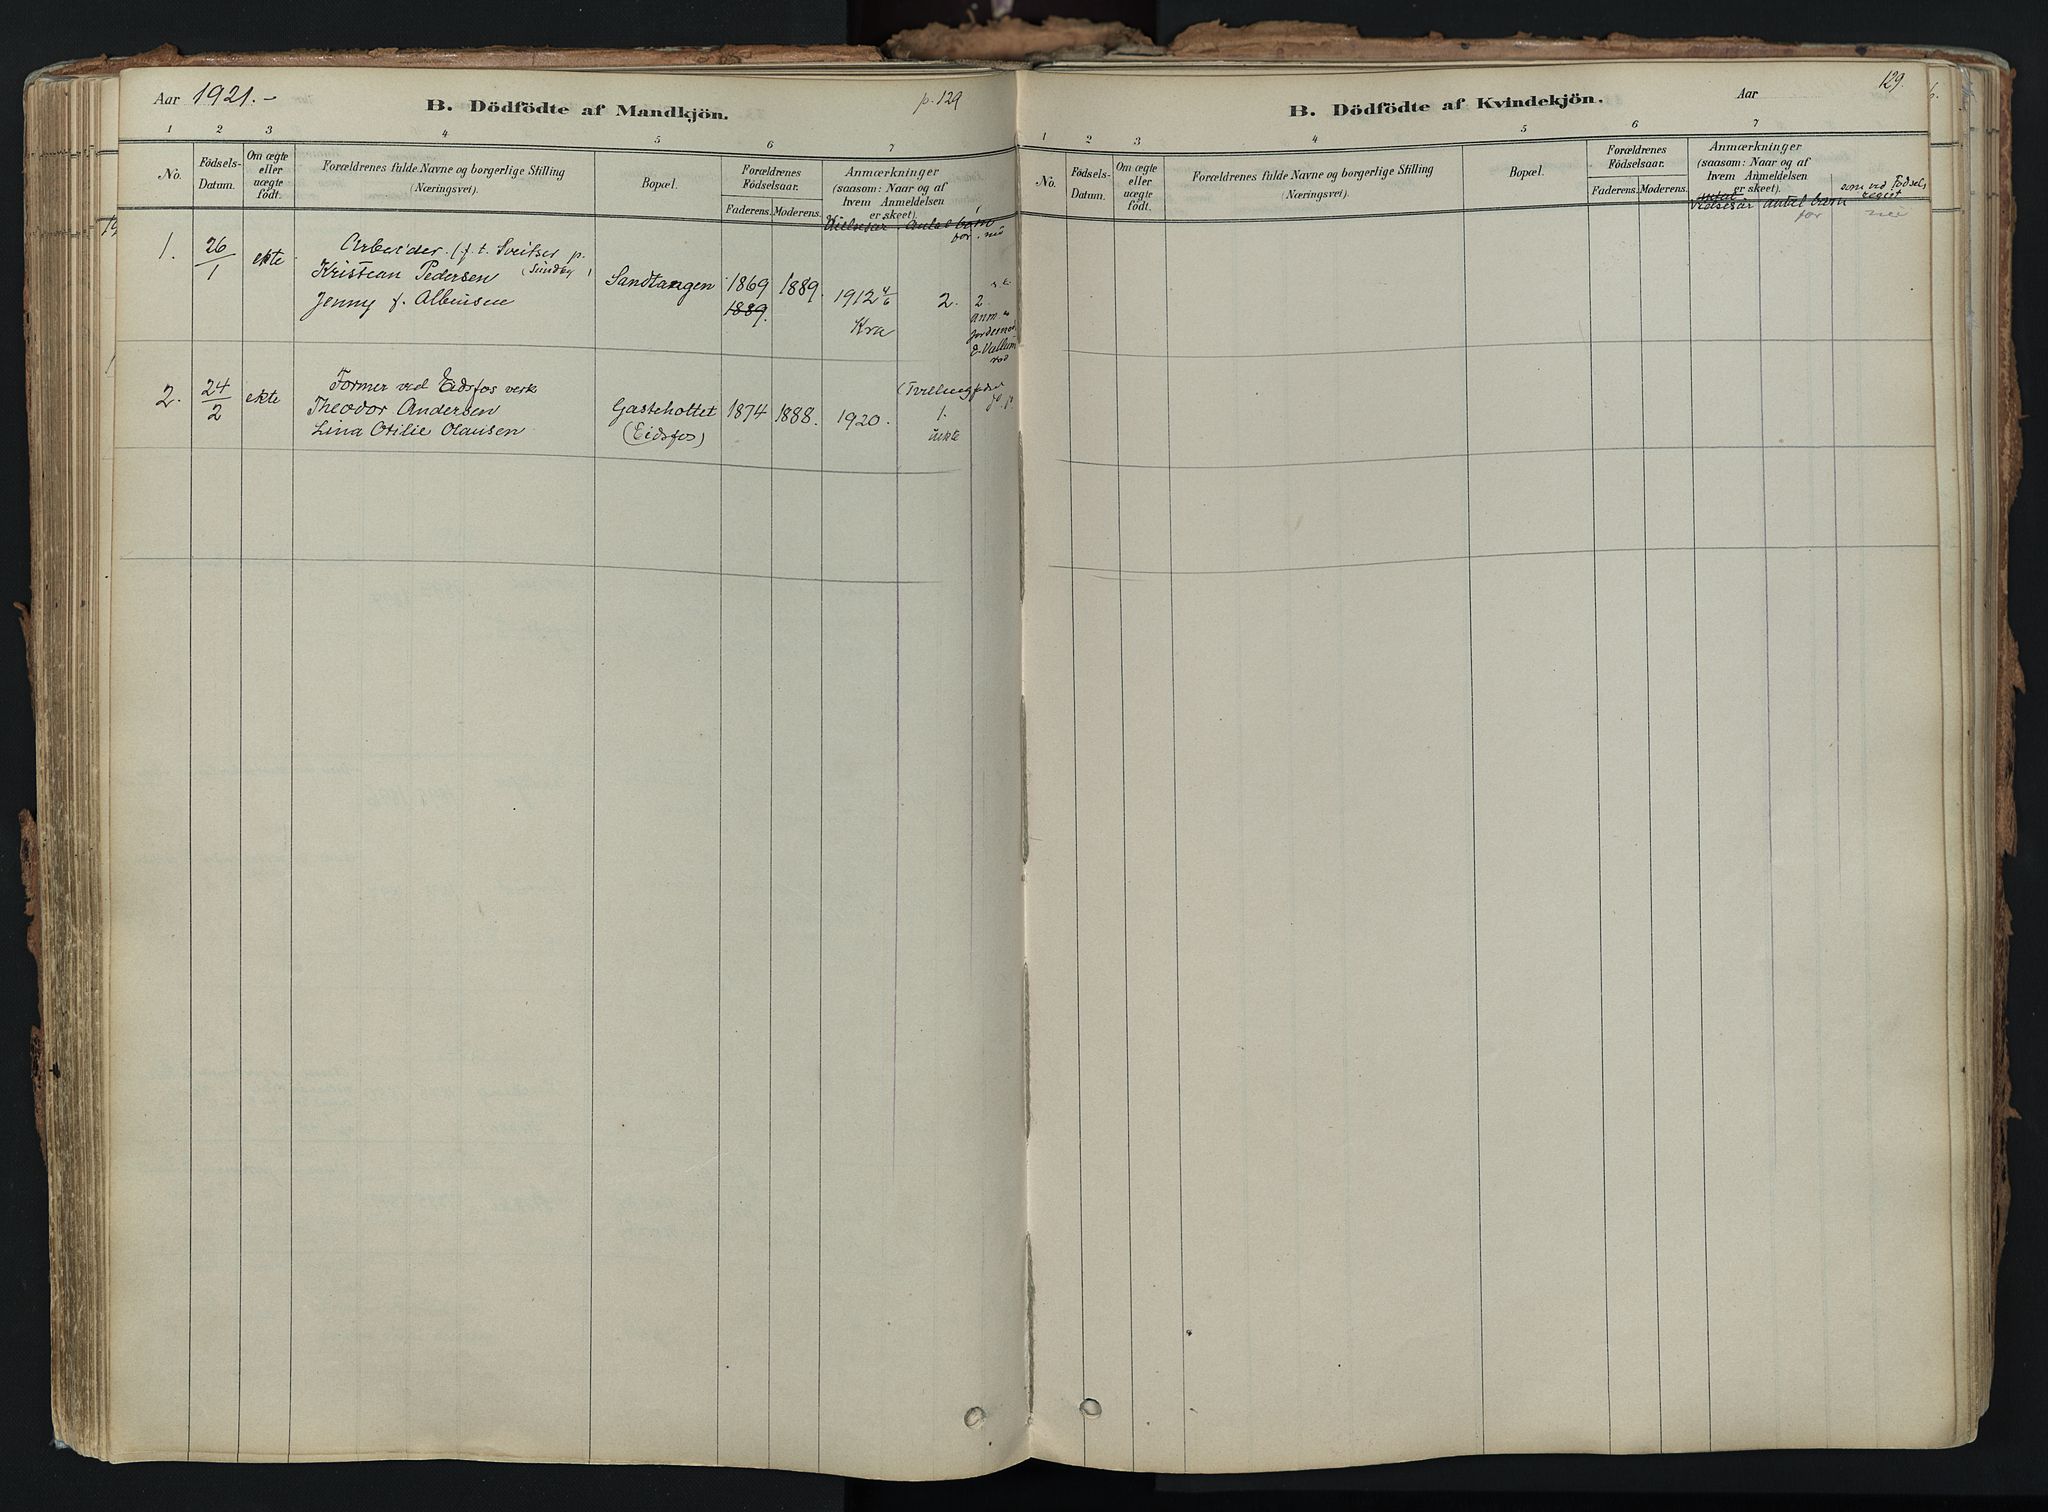 Aar 1921.-
B. Dödfödte af Mandkjön.
p. 129
1 2 3 4 5 6 7
No.
Födsels-
Datum.
Om ægte
eller
uægte
födt.
Forældrenes fulde Navne og borgerlige Stilling
(Næringsvei).
Bopæl.
Forældrenes
Födselsaar.
Faderens. Moderens.
Anmærkninger
(saasom: Naar og af
hvem Anmeldelsen
er skeet).
Vielsesår. Antal barn
før. nu
1. 26/1 ekte
Arbeider. (f. t. Sveitser p.
Kristian Pedersen (Sundby)
Jenny f. Albinsen
Sandtangen
1869
1889.
1889.
1912 4/6
Kra
2.
2.
anm
jordemor
2. 24/2 ekte
Former ved Eidsfos verk
Theodor Andersen
Lina Otilie Olausen
Gasteholtet
(Eidsfos)
1874 1888. 1920.
1.
uekte
129.
B. Dödfödte af Kvindekjön.
Aar
1 2 3 4 5 6 7
No.
Födsels-
Datum.
Om ægte
eller
uægte
födt.
Forældrenes fulde Navne og borgerlige Stilling
(Næringsvei).
Bopæl.
Forældrenes
Födselsaar.
Faderens. Moderens.
Anmærkninger
(saasom: Naar og af
hvem Anmeldelsen
er skeet).
Vielsesår antal barn
før
som ved Fødsels
regist